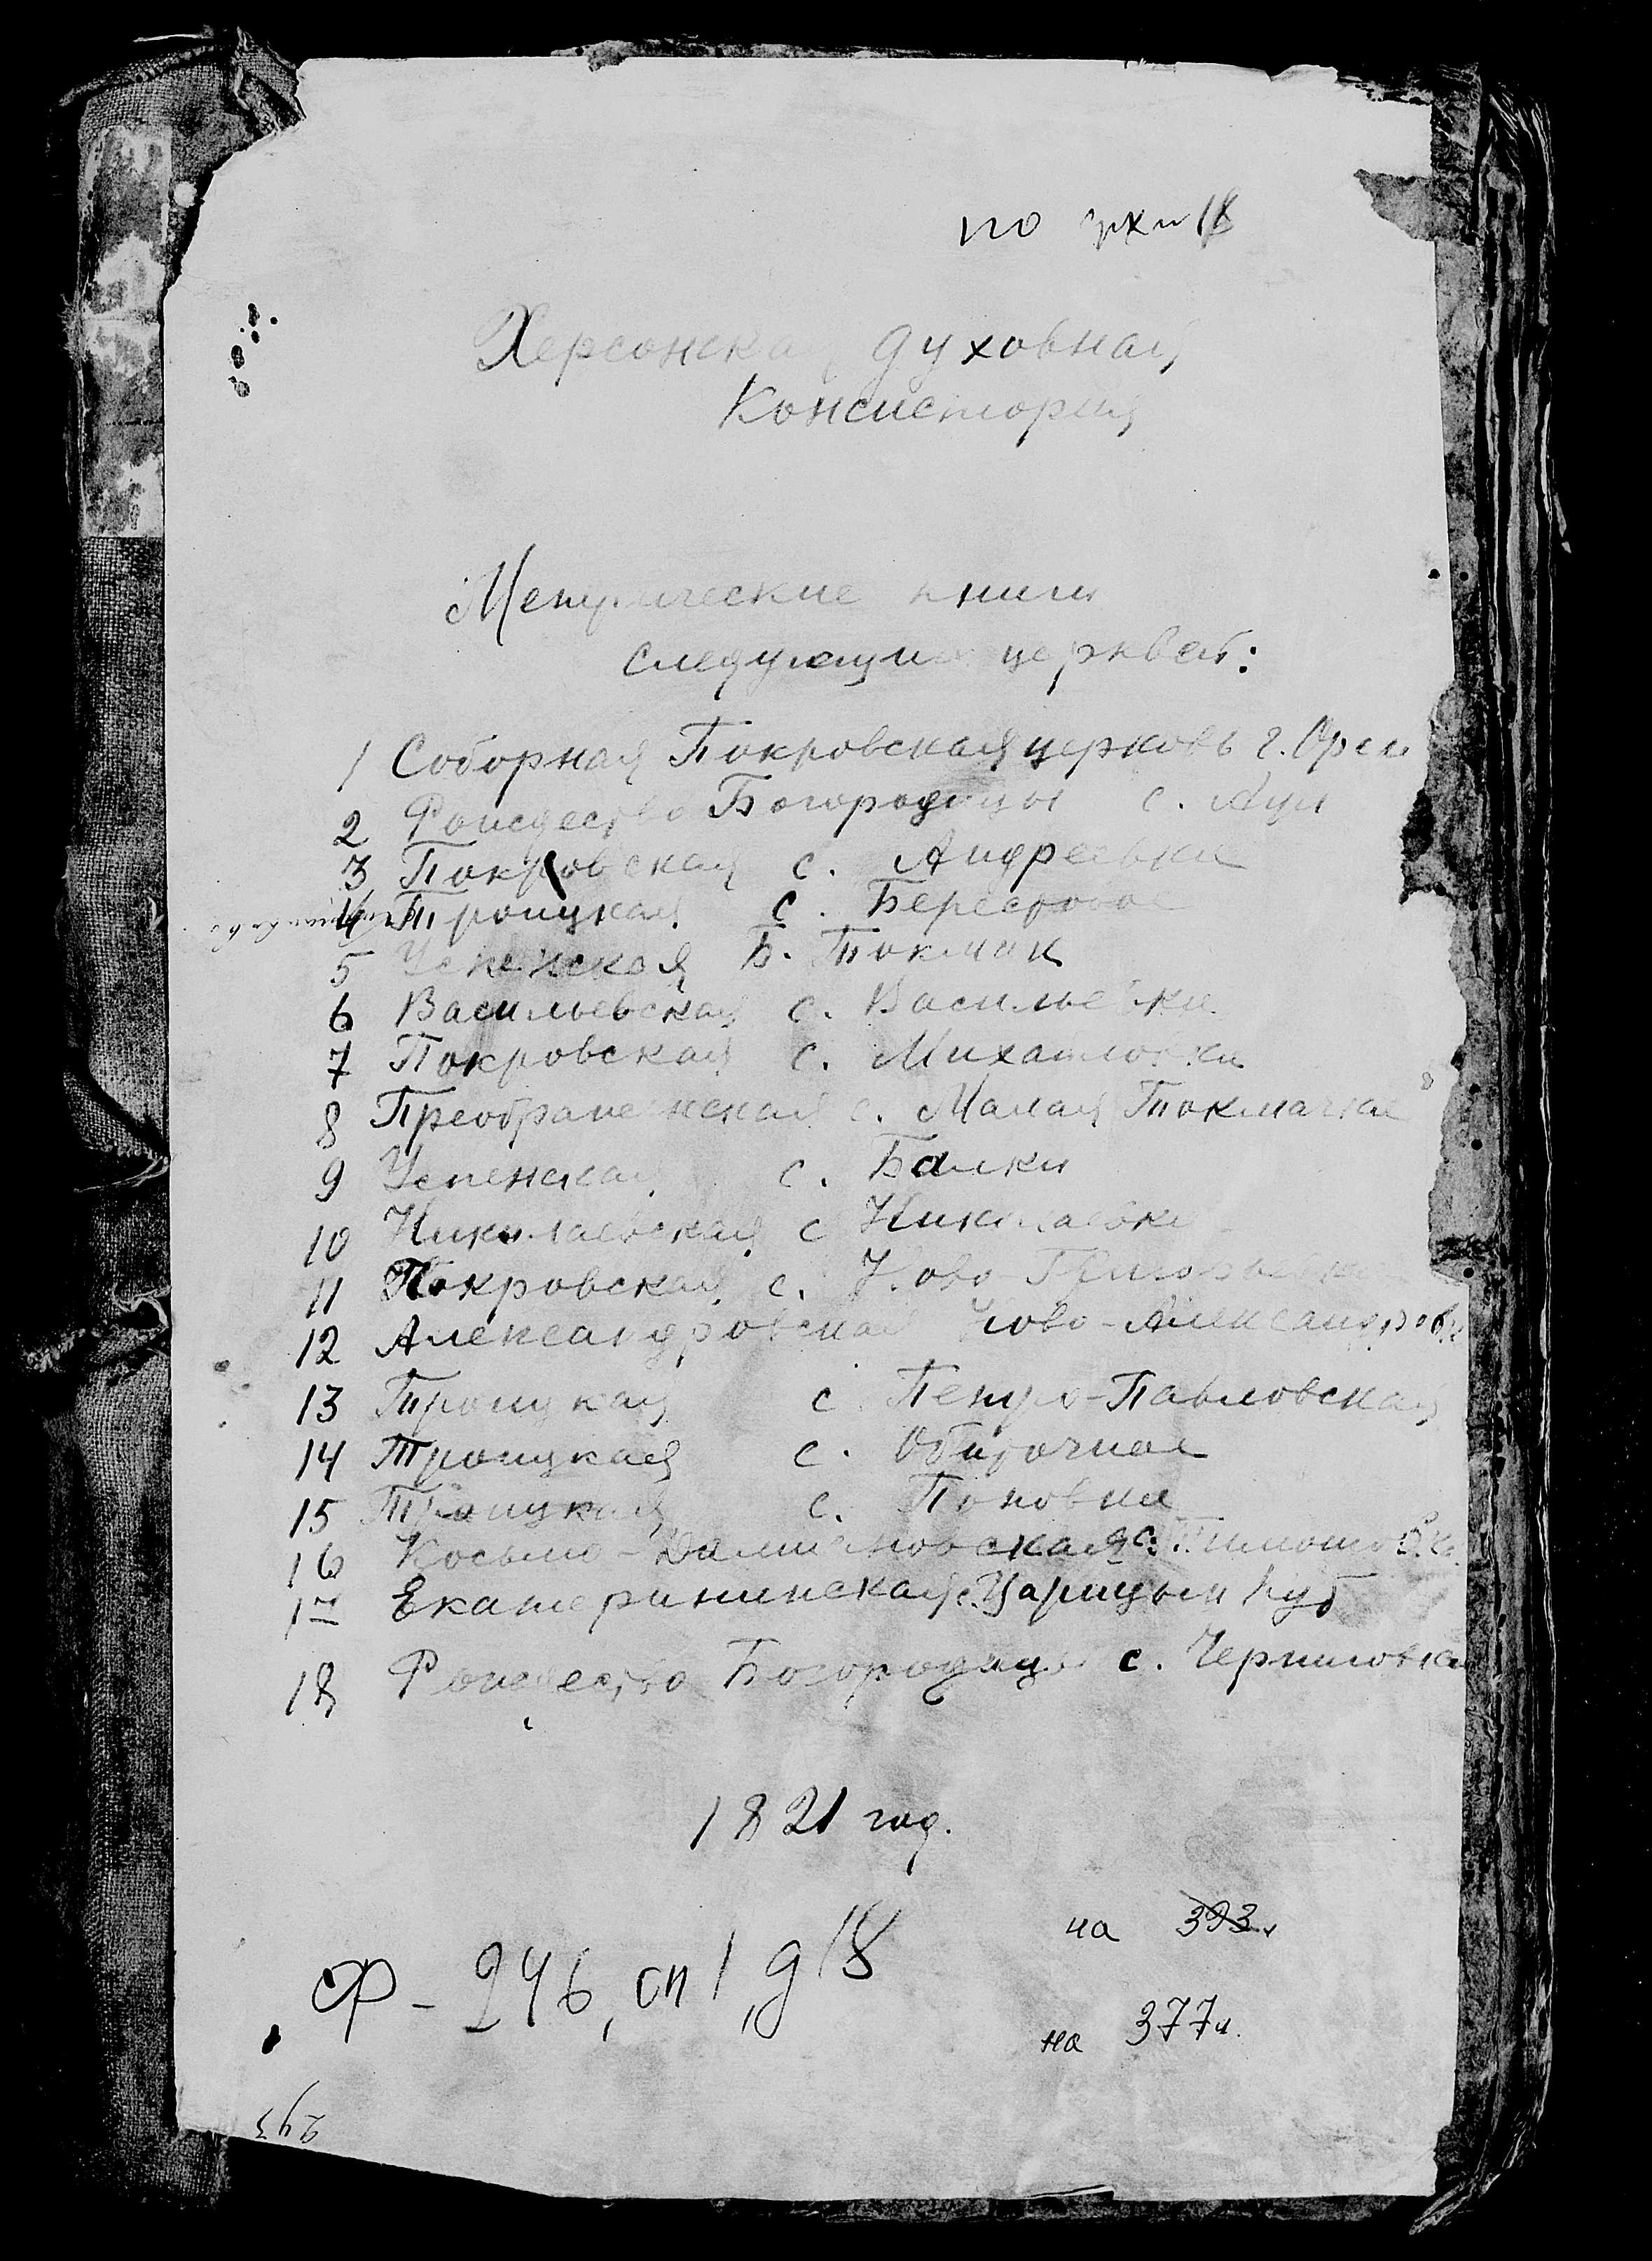 по
Херсонская духовная
Консистория
Метрические книги
следующих церквей:
1 Соборная Покровская церковь г. Орех
2 Рождество Богородицы с.
3 Покровская с. Андреевка
4 Троицкая с. Берестовое
5 Успенская Б. Токмак
6 Васильевская с. Васильевка
7 Покровская с. Михайловка
8 Преображенская с. Малая Токмачка
9 Успенская с. Балки
10 Николаевская с Николаевка
11 Покровская с. Ново-Григорьевка
12 Александровская Ново-Александров
13 Троицкая с. Петро-Павловская
14 Троицкая с. Обиточное
15 Троицкая с. Поповка
16 Косьмо-Дамиановская с. Тимошовка
17 Екатерининская с. Царицын Кут
18 Рождество Богородицы с. Черниговка
1821 год.
на 393 л
Ф-246, оп 1, д 18
на 377 л.
293